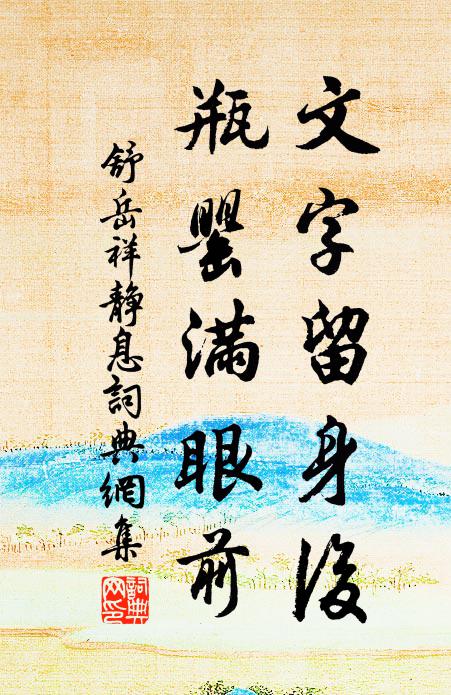 文字留身後
瓶罌滿眼前
舒岳祥靜息詞典網集
詞典网印